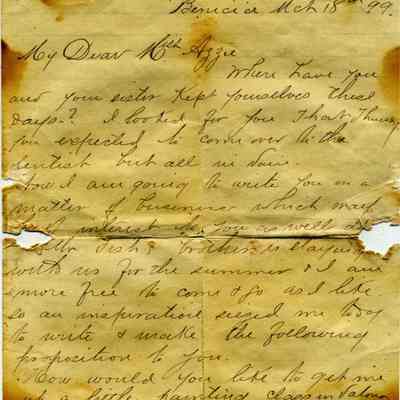 Benicia Mch 18th 99.
My Dear Miss Azzie
Where have you
and your sister kept yourselves these
days? I looked for you that
you expected to come over to the
dentist but all in vain.
Now I am going to write you on a
matter of business which may
interest you as well as
brother is staying
with us for the summer & I am
more free to come & go as I like
so an inspiration seized me today
to write & make the following
proposition to you.
How would you like to get me
up a little painting class in